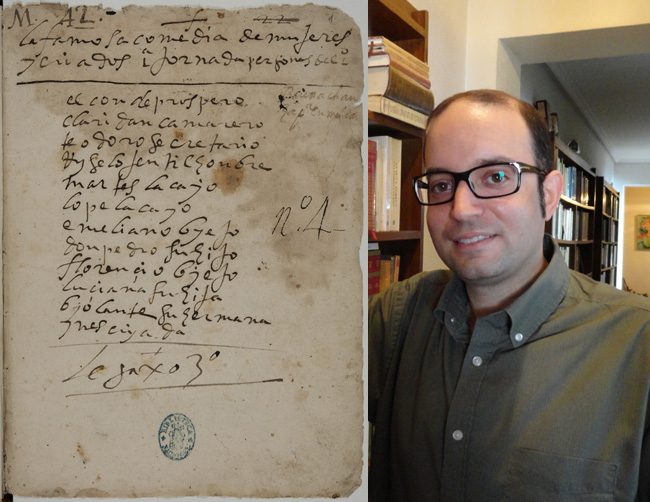 M. 42.
la famosa comedia de mujeres
y criados 1ª jornada personas del 1º
el conde prospero
claridan camarero
teodoro secretario
riselo jentilhonbre
martes lacayo
lope lacayo
emeliano biejo
don pedro su hijo
florencio biejo
luciana su hija
biolante su hermana
ynes criada
nº 4
Legaxo 3º